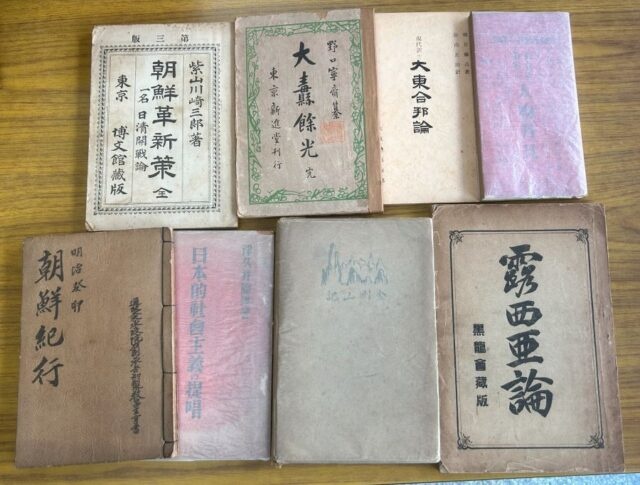 第三版
紫山川崎三郎著
朝鮮革新策 全
一名 日清開戰論
東京 博文館藏版
野口寧齋纂
大纛餘光 完
東京新進堂刊行
現代訳
大東合邦論
明治癸卯
朝鮮紀行
日本的社會主義の提唱
金剛山記
露西亜論
黒龍會藏版